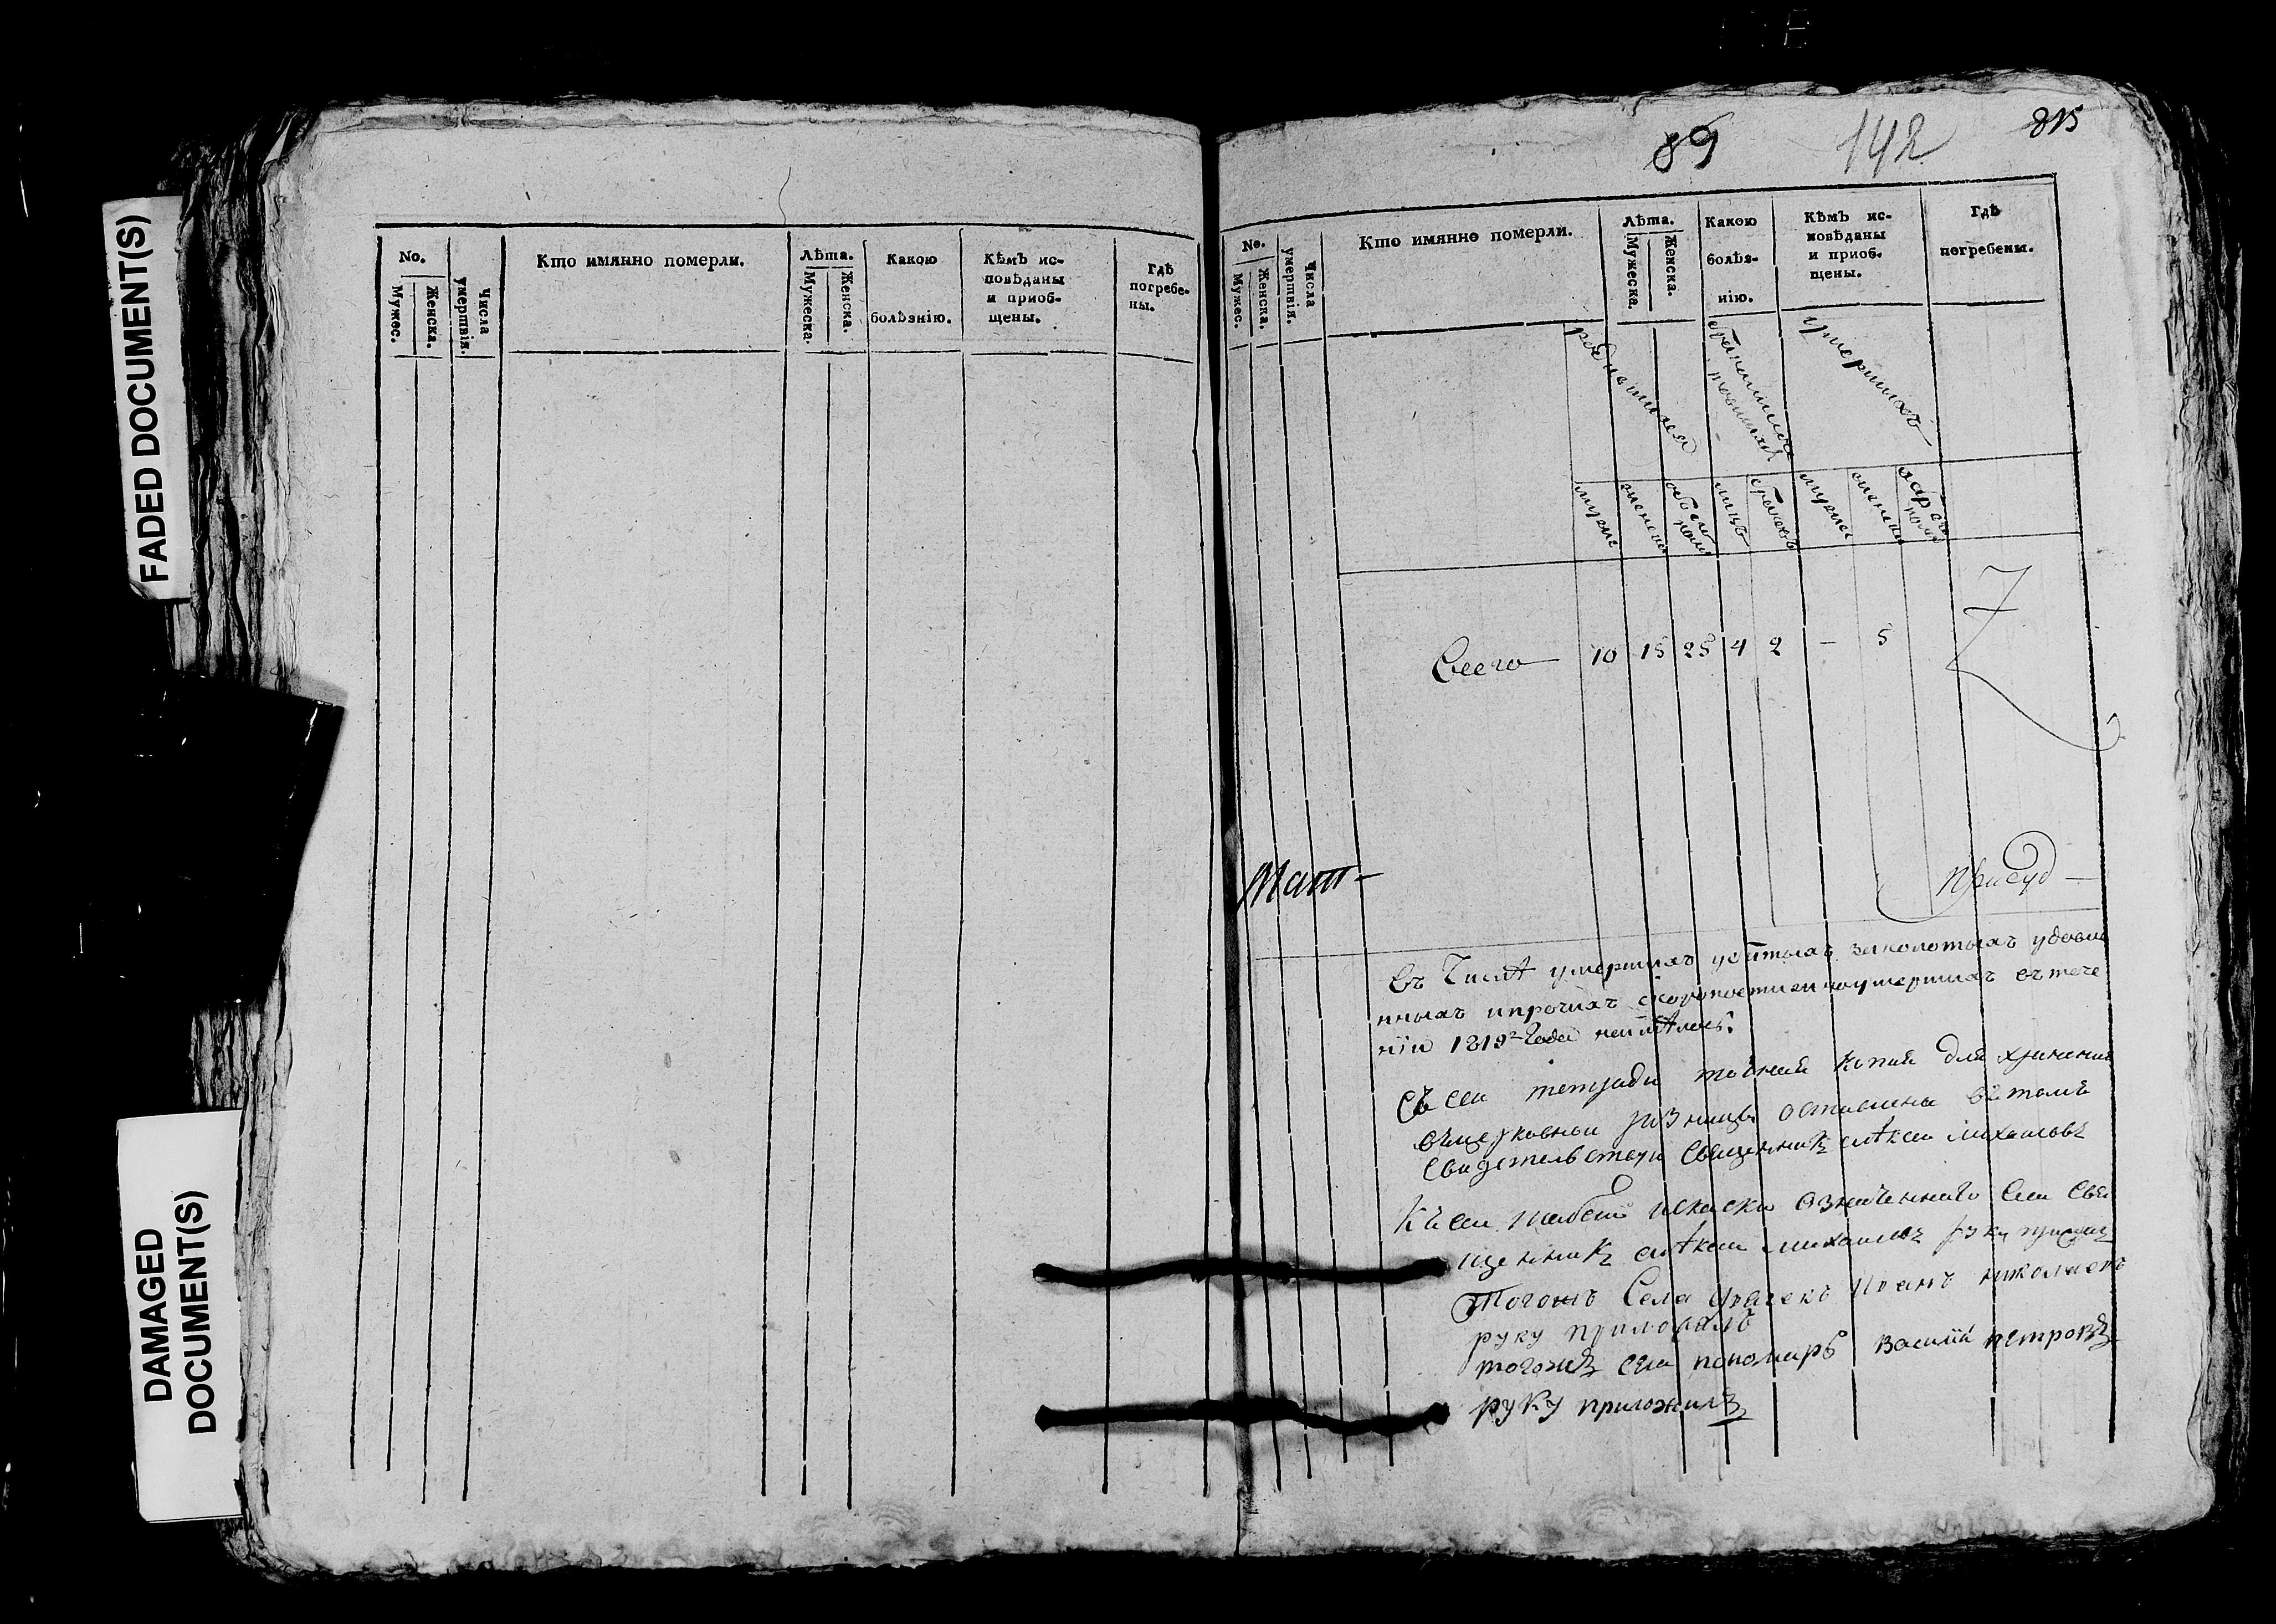 FADED DOCUMENT(S)
DAMAGED
DOCUMENT(S)
No.
Мужес.
Женска.
Числа
умертвія.
Кто имянно померли.
Лѣта.
Мужеска.
Женска.
Какою
болѣзнію.
Кѣмъ ис-
повѣданы
и приоб-
щены.
Гдѣ
погребе-
ны.
89
142
815
No.
Мужес.
Женска.
Числа
умертвія.
Кто имянно померли.
Лѣта.
Мужеска.
Женска.
Какою
болѣз-
нію.
Кѣмъ ис-
повѣданы
и приоб-
щены.
Гдѣ
погребены.
родившихся
умершихъ
мужес
женска
обоего
пола
лицъ
браковъ
мужес
женска
Всего 10 15 25 4 2 — 5
Мат-
присуд-
въ Числѣ умершихъ убитыхъ заколотыхъ удавле
нныхъ и прочихъ скоропостижноумершихъ въ тече
ніи 1819го Года неимѣлось.
Съ сеи тетради точная копия для хранения
въ церковнои ризницѣ оставлена въ томъ
свидетельствую Священникъ алѣксеи михаиловъ
Къ сеи означеннаго села Свя
щенникъ алѣксеи михаиловъ руку приложилъ
Тогожъ Села дьячекъ Иванъ николаевъ
руку приложилъ
тогожъ села пономарь василій петровъ
руку приложилъ